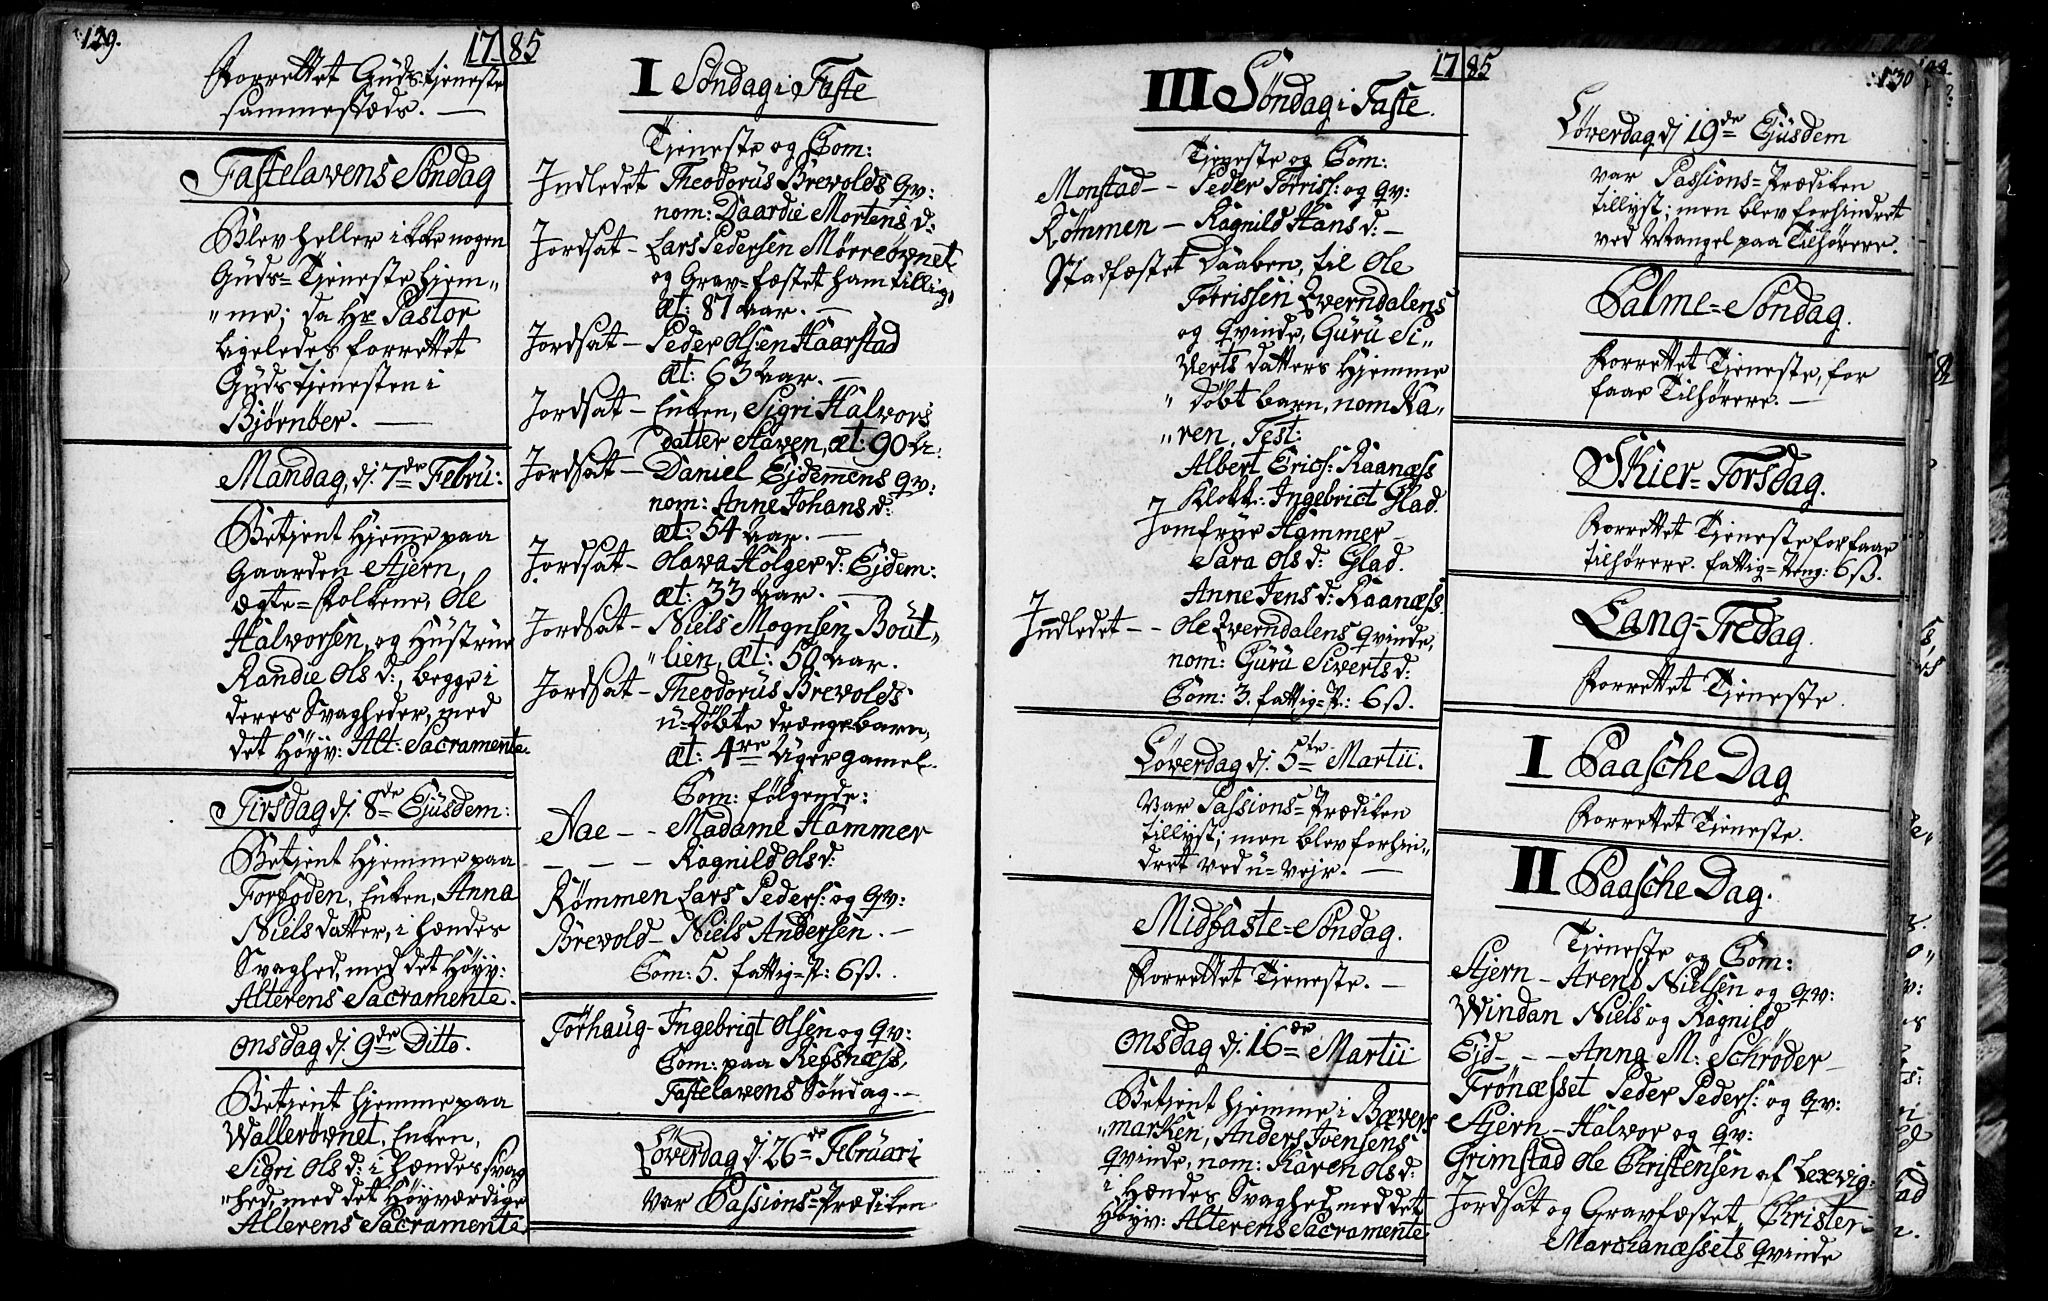 129.
1785
Forrettet Guds tjeneste
sammestæds. —
Fastelavens Søndag
Blev heller ikke nogen
Guds=Tjeneste Hjem„
„me; da Hr Pastor
ligeledes forrettet
Guds tjenesten i
Bjørnøer. —
Mandag, d: 7de Febru:
Betjent Hjemme paa
Gaarden Stjern,
Ægte=Folkene, Ole
Halvorsen, og Hustrue
Randie Ols d:, begge i
deres Svagheder, med
det Høyv: Alt: Sacramente.
Tirsdag d: 8de Ejusdem:
Betjent Hjemme paa
Forfoden, Enken, Anna
Niels datter, i hendes
Svaghed, med det Høyv:
Alterens Sacramente.
Onsdag d: 9de Ditto.
Betjent hjemme paa
Wallerøvnet, Enken,
Sigri Ols d: i hendes svag
„hed, med det Høyværdige
Alterens Sacramente.
I Søndag i Faste
Tjeneste og Com:
Indledet Theodorus Brevolds Qv:
nom: Daardie Mortens d:
Jordsat — Lars Pedersen Mørreøvnet
og Grav=fæstet ham tillige
Æt: 87 Aar. —
Jordsat — Peder Olsen Haarstad
Æt: 63 Aar. —
Jordsat — Enken, Sigri Halvors
datter Staven, æt: 90 A:
Jordsat — Daniel Ejdemens Qv:
nom: Anne Johans d:
æt: 54 Aar. —
Jordsat — Olava Holger d: Ejdem:
æt: 33 Aar. —
Jordsat — Niels Mognsen Bout„
„lien, Æt: 50 Aar.
Jordsat — Theodorus Brevolds
u=døbte drængebarn,
æt: 4re Uger gamel.
Com: følgende:
Aae — — Madame Hammer
— — — Ragnild Ols d:
Rømmen Lars Peders: og Qv:
Brevold — Niels Andersen. —
Com: 5. fattig=P: 6 ß.
Tørhaug — Ingebrigt Olsen og Qv:
Com: paa Refsnæss,
Fastelavens Søndag. —
Løverdag d: 26de Februari
Var Passions=Prædiken
1785
:130
III Søndag i Faste.
Tjeneste og Com:
Monstad — — Peder Tørriss: og Qv:
Rømmen — Ragnild Hans d: —
Stadfæstet Daaben, til Ole
Tørrissen Everndalens
og Qvinde, Guru Si„
Verts datters Hjemme
„ døbt barn, nom Ka„
„ren, Test:
Albert Erics: Raanæss
Klokk: Ingebrigt Glad.
Jomfrue Hammer —
Sara Ols d: Glad.
Anne Jens d: Raanæss.
Indledet — — Ole Everndalens Qvinde,
nom: Guru Siverts d:
Com: 3. fattig=P: 6 ß.
Løverdag d: 5te Martii.
Var Passions=Prædiken
tillyst; men blev forhin„
dret ved u=vejr. —
Midfaste=Søndag.
Forrettet Tjeneste. —
Onsdag d: 16de Martii
Betjent hjemme i Bævers
„marken, Anders Joensens
Qvinde, nom: Karen Ols d:
i Hændes Svaghed, med det
Høyv: Alterens Sacramente
Løverdag d: 19de Ejusdem
var Passions=Prædiken
tillyst; men blev forhindret
ved Mangel paa Tilhørere.
Palme=Søndag.
Forrettet Tjeneste, for
faar Tilhørere. —
Skier=Torsdag.
Forrettet Tjeneste for faar
tilhørere. fattig=Peng: 6 ß.
Lang=Fredag.
Forrettet Tjeneste.
I Paasche Dag
Forrettet Tjeneste.
II Paasche Dag.
Tjeneste og Com:
Stjern — Arens Nielsen og Qv:
Windan Niels og Ragnild
Ejd — — — Anna M: Schrøder —
Frønæsset Peder Peders: og Qv:
Stjern — Halvor og Qv:
Grimstad Ole Christensen af Lexvig:
Jordsat og Gravfæstet Christen
Marchanæssets Qvinde